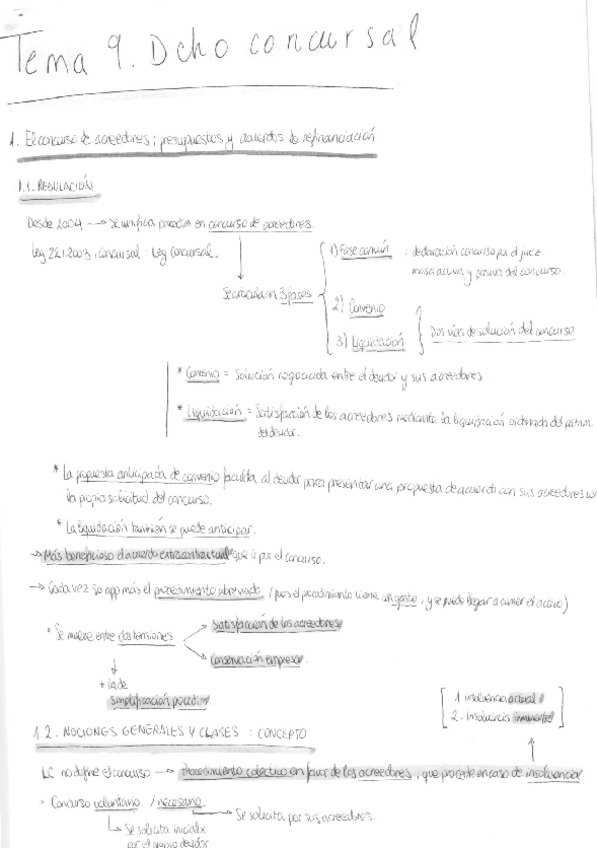 Tema 9. Dcho concursal
1. El concurso de acreedores; presupuestos y acuerdos de refinanciación
1.1. REGULACIÓN
Desde 2004 → Se unifica procedim en concurso de acreedores.
Ley 22/2003, concursal: Ley Concursal.
Se articula en 3 fases
1) Fase común : declaración concurso por el juez
masa activa y pasiva del concurso.
2) Convenio
3) Liquidación
Dos vías de solución del concurso
* Convenio = Solución negociada entre el deudor y sus acreedores
* Liquidación = Satisfacción de los acreedores mediante la liquidación ordenada del patrim.
del deudor.
* La propuesta anticipada de convenio faculta al deudor para presentar una propuesta de acuerdo con sus acreedores
la propia solicitud del concurso.
* La liquidación también se puede anticipar.
→ Más beneficioso el acuerdo extracontractual que ir por el concurso.
→ Cada vez se app más el procedimiento abreviado (pues el procedimiento tiene un gasto, y se puede llegar a comer el activo)
* Se mueve entre dos tensiones
Satisfacción de los acreedores
Conservación empresa.
+ idea de
simplificación procedim
1 insolvencia actual
2. insolvencia inminente
1.2. NOCIONES GENERALES Y CLASES : CONCEPTO
LC no define el concurso → Procedimiento colectivo en favor de los acreedores, que procede en caso de insolvencia
· Concurso voluntario / necesario
→ Se solicita por sus acreedores.
Se solicita inicialx
por el propio deudor